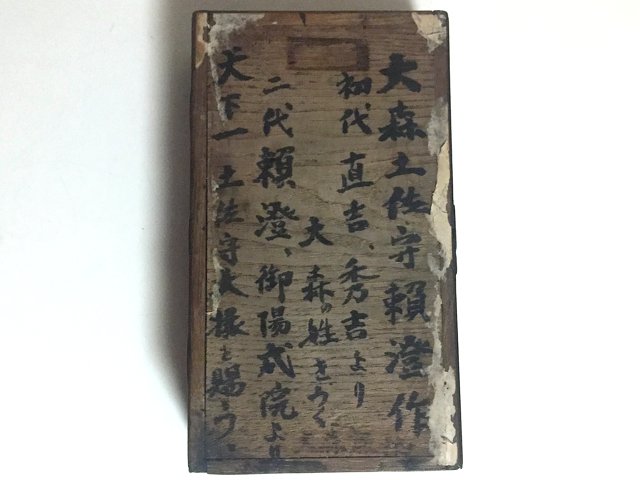 大森土佐守賴澄作
初代 直吉、秀吉より
大森の姓をうく
二代 賴澄、御陽成院より
天下一土佐守大掾を賜